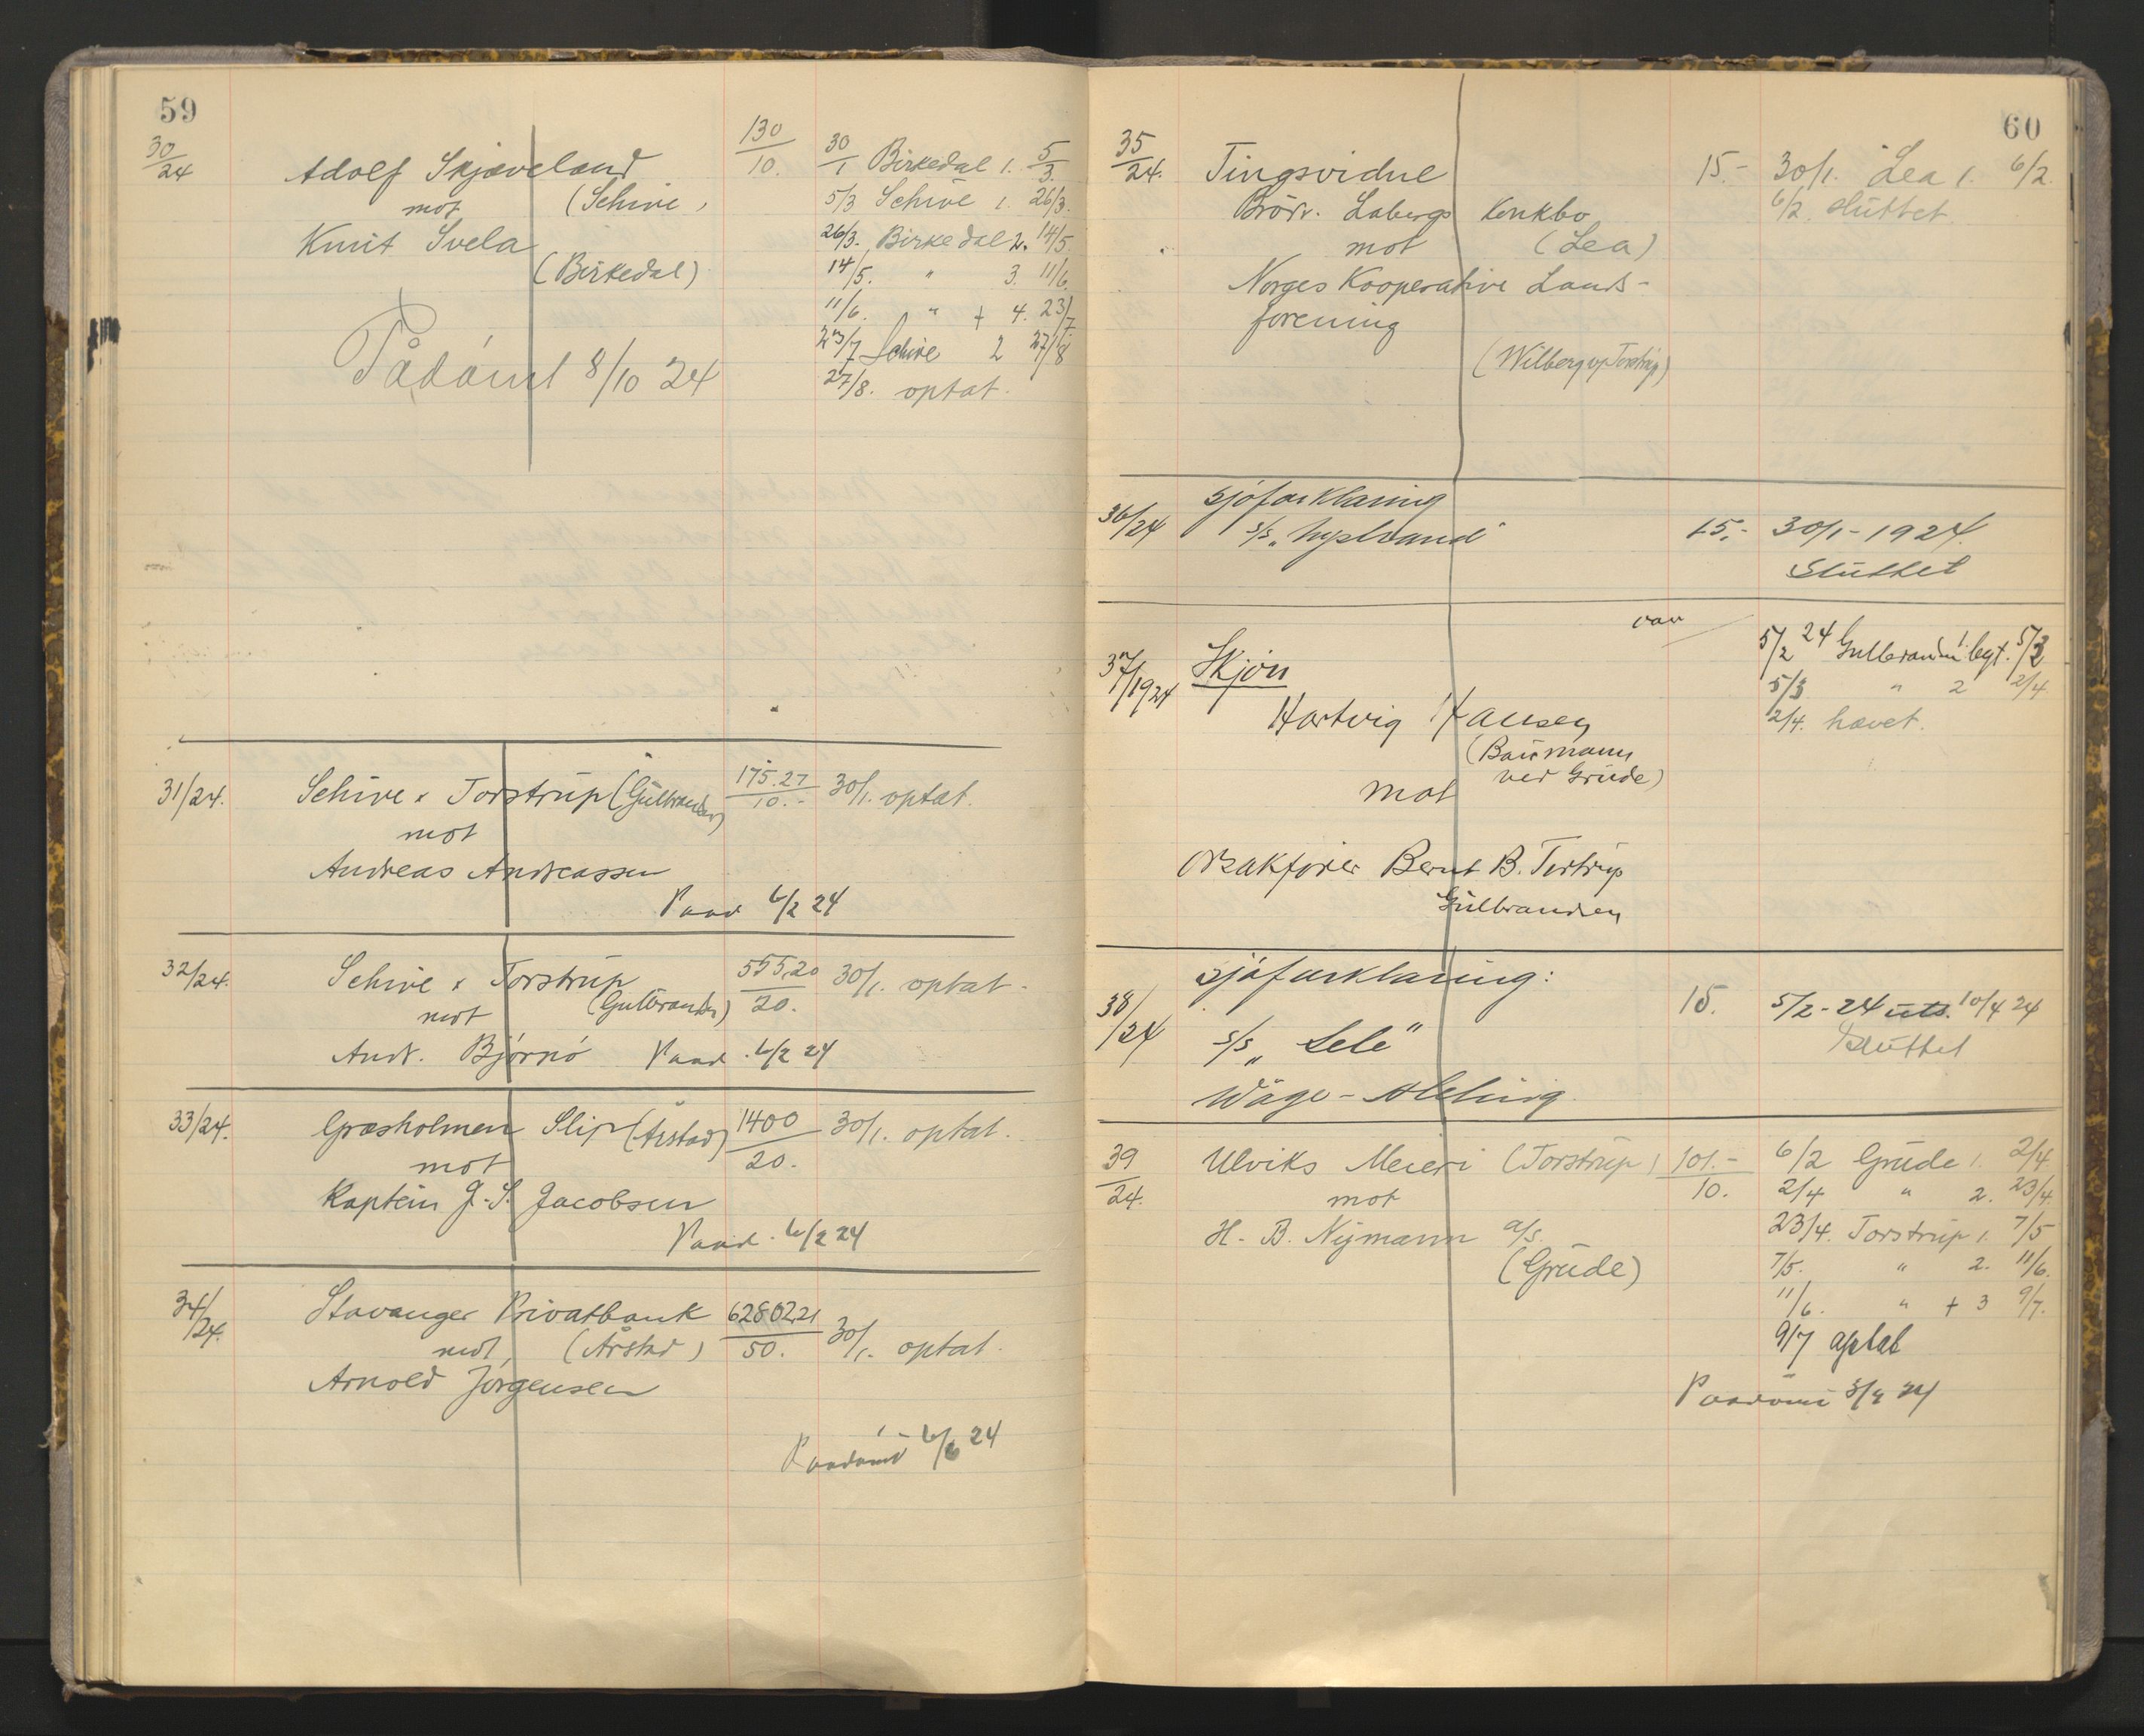 59
30/24 Adolf Skjæveland 130/10. 30/1 Birkedal 1. 5/3.
mot (Schive, 5/3 Schive 1. 26/3.
Knut Svela 26/3. Birkedal 2. 14/5
(Birkedal) 14/5. " 3. 11/6.
11/6. " + 4. 23/7.
23/7 Schive 2 27/8
Pådömt 8/10 24 27/8. optat.
31/24. Schive & Torstrup (Gulbrandsen) 175.27/10.- 30/1. optat.
mot
Andreas Andreassen
Paad 6/2 24
32/24. Schive & Torstrup 555,20/20. 30/1. optat.
mot (Gulbrandsen)
Andr. Bjørnö Paad. 6/2 24
33/24. Græsholmen Slip (Årstad) 1400/20. 30/1. optat.
mot
Kaptein J. S. Jacobsen
Paad. 6/2 24
34/24. Stavanger Privatbank 62802,21/50. 30/1. optat.
mot, (Årstad)
Arnold Jörgensen
Paadömt 6/2 24
60
35/24. Tingsvidne 15.- 30/1. Lea 1. 6/2.
Brödr. Labergs konkbo 6/2. sluttet
mot (Lea)
Norges Kooperative Lands-
forening
(Wilberg v/ Torstrup)
36/24 Sjöforklaring
s/s "Nystrand" 15.- 30/1-1924.
Sluttet
37/1924 Skjön 5/2 24 Gulbrandsen 1. begt. 5/3
5/3 " 2 2/4
Hartvig Hansen 2/4. hævet.
(Baumann
ved Grude)
mot
Orsakfører Bernt B. Torstrup
Gulbrandsen
Sjöforklaring:
38/24 15. 5/2-24 uts. 10/4 24
s/s "Sele" Sluttet
39/24. Ulviks Meieri (Torstrup) 101.-/10. 6/2 Grude 1. 2/4
mot 2/4 " 2. 23/4.
H. B. Nymann a/s. 23/4. Torstrup 1. 7/5
(Grude) 7/5. " 2. 11/6.
11/6. " + 3 9/7.
9/7 optat